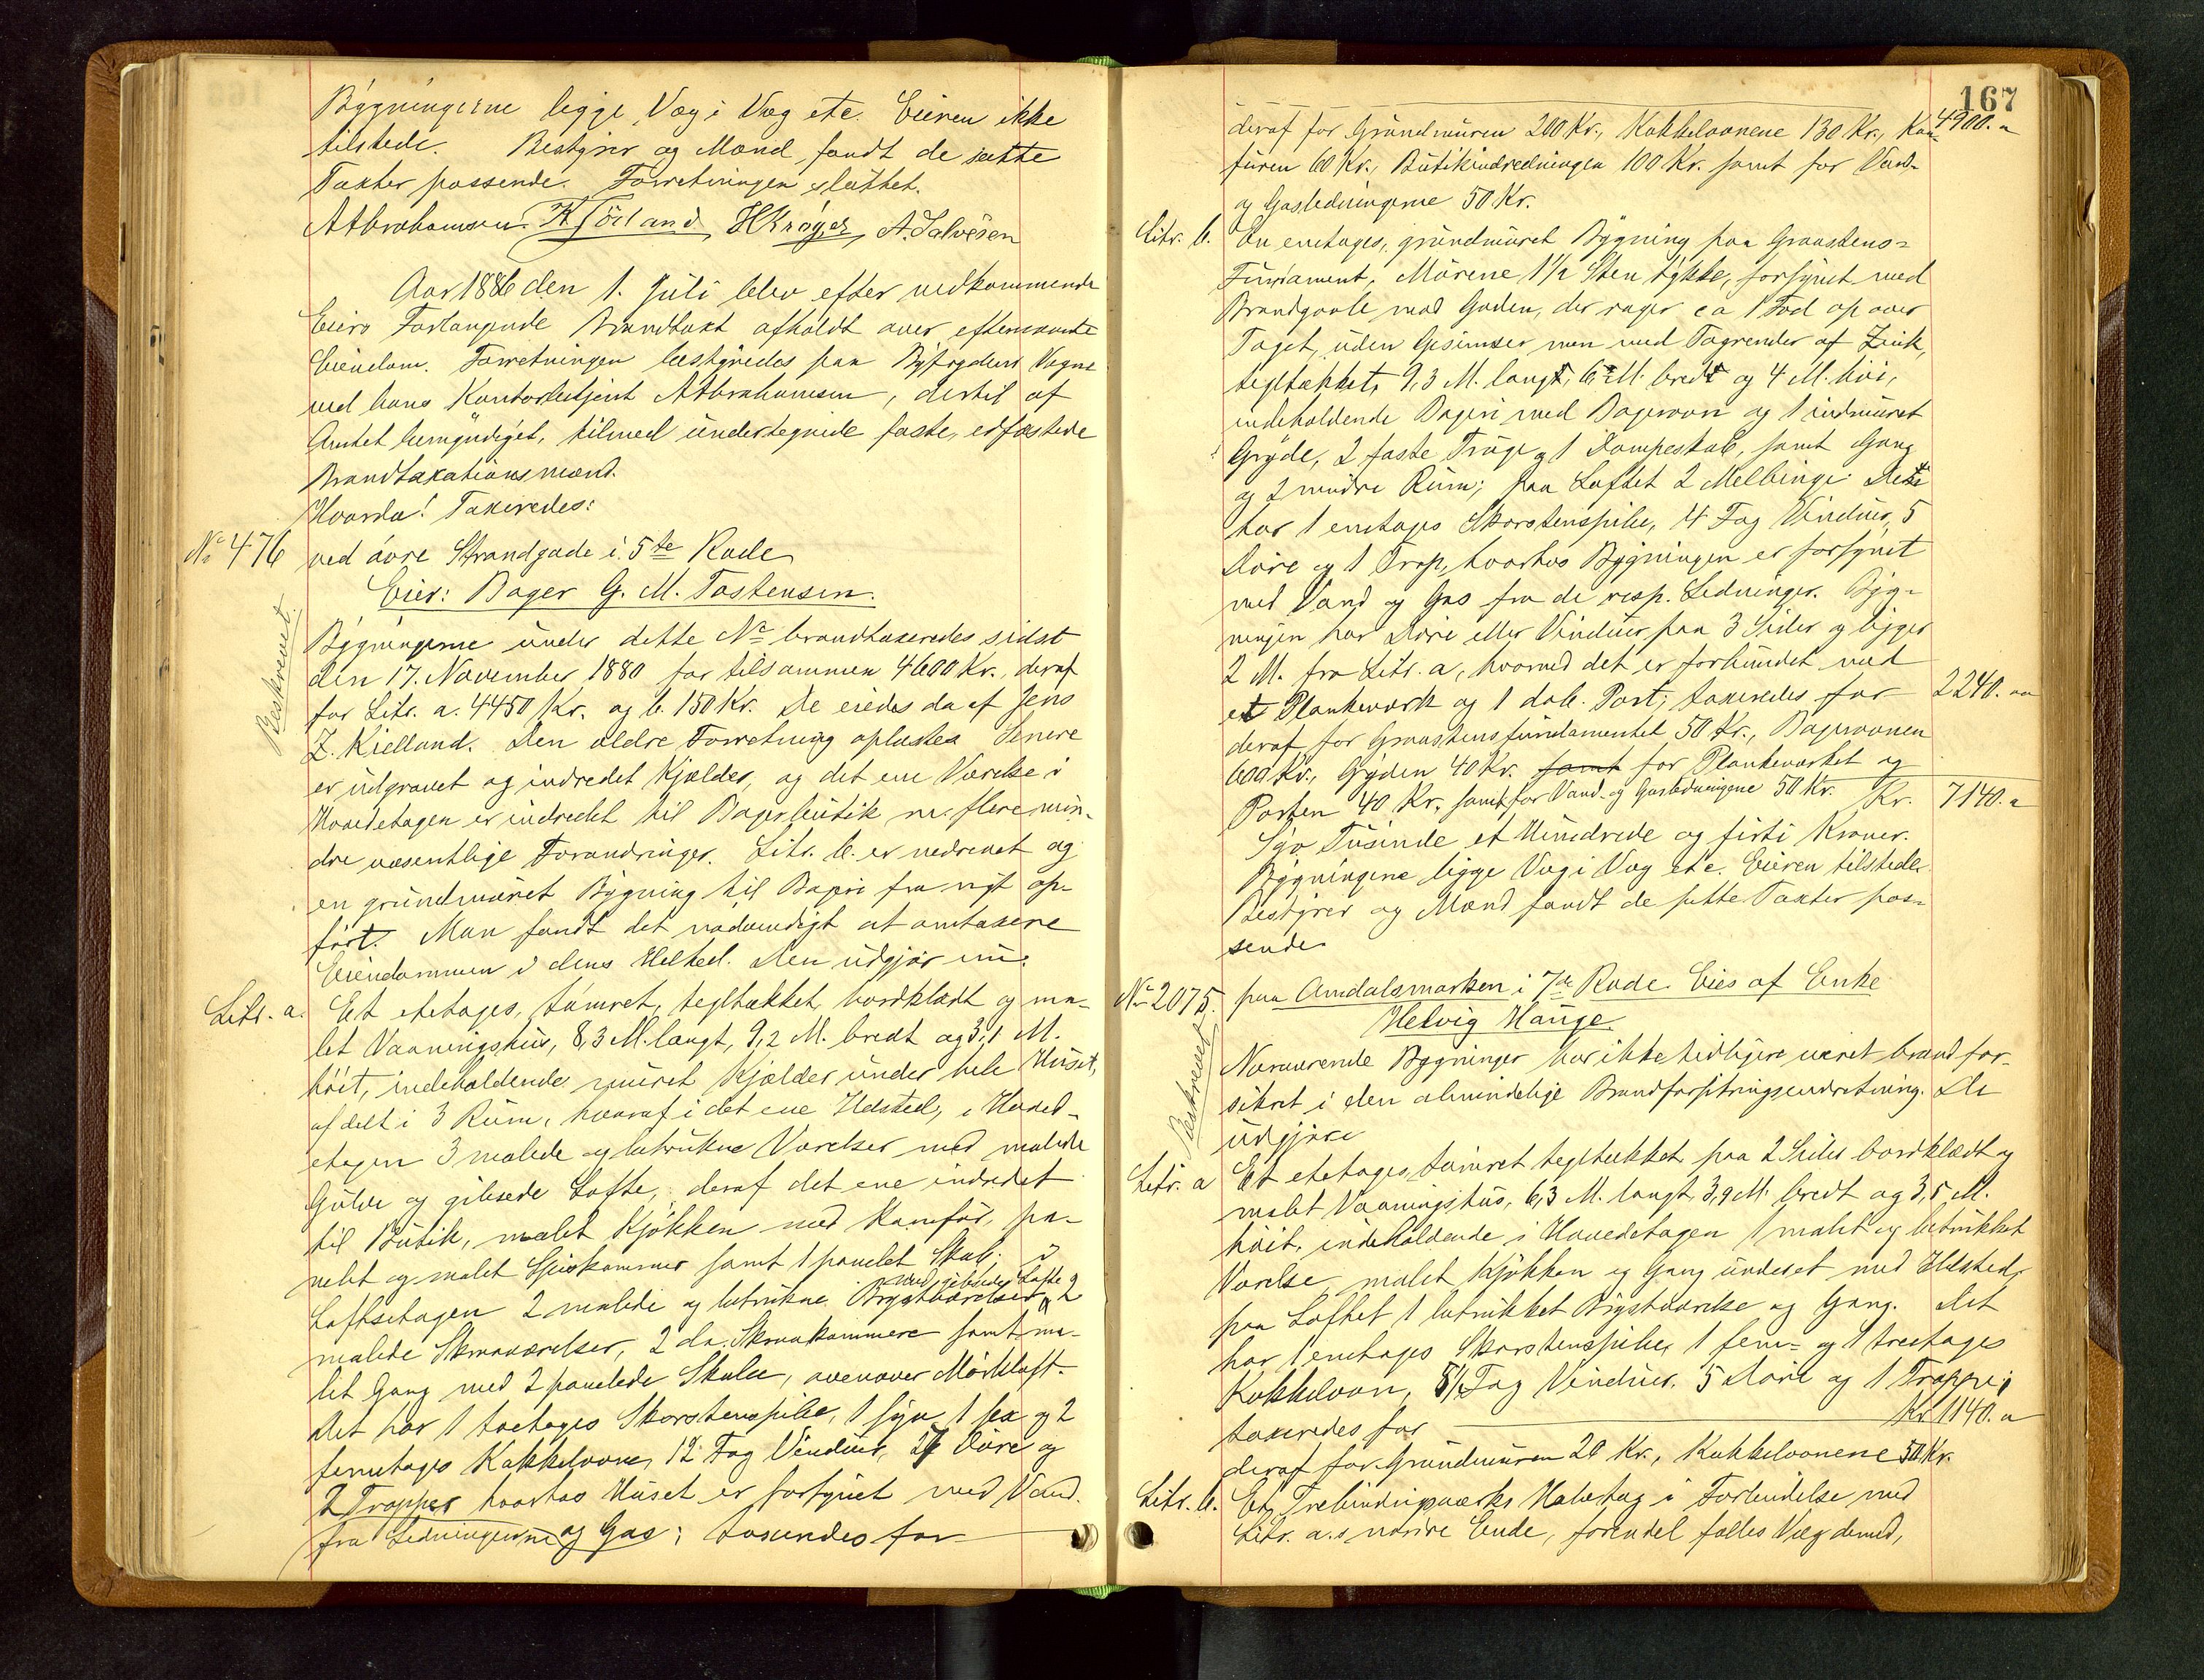 Bygningerne ligge Væg i Væg etc. Eieren ikke
tilstede. Bestyrer og Mænd fandt de satte
Taxter passende. Forretningen sluttet.
AAbrahamsen. K Törland HKrøger, A. Salvesen
Aar 1886 den 1. Juli blev efter vedkommende
Eiers Forlangende Brandtaxt afholdt over efternævnte
Eiendom. Forretningen bestyredes paa Byfogdens Vegne
ved hans Kontorbetjent AAbrahamsen, dertil af
Amtet bemyndiget, tilmed undertegnede faste, edfæstede
Brandtaxationsmænd.
Hvorda! Taxeredes:
No 476 ved øvre Strandgade i 5te Rode
Eier: Bager G. M. Tostensen.
Beskrevet.
Bygningerne under dette No brandtaxeredes sidst
den 17. November 1880 for tilsammen 4600 Kr., deraf
for Litr. a. 4450 Kr. og b. 150 Kr. De eiedes da af Jens
Z. Kielland. Den ældre Forretning oplæstes Senere
er udgravet og indredet Kjælder, og det ene Værelse i
Hovedetagen er indredet til Bagerbutik m. flere min-
dre væsentlige Forandringer. Litr. b. er nedrevet og
en grundmuret Bygning til Bageri fra nyt op-
ført. Man fandt det nødvendigt at omtaxere
Eiendommen i dens Helhed. Den udgjør nu:
Litr. a. Et etetages, tømret, tegltækket, bordklædt og ma-
let Vaaningshus, 8,3 M. langt, 9,2 M. bredt og 3,1 M.
høit, indeholdende muret Kjælder under hele Huset,
afdelt i 3 Rum, hvoraf i det ene Ildsted, i Hoved-
etagen 3 malede og betrukne Værelser med malede
Gulve og gibsede Lofte, deraf det ene indredet
til Butik, malet Kjøkken med Komfur, pa-
nelet og malet Spiskammer samt 1 panelet Skab. i
Loftsetagen 2 malede og betrukne Brystværelser med gibsede Lofte, 2
malede Skraaværelser, 2 do. Skraakammere samt ma-
let Gang med 2 panelede Skabe, ovenover Mørkloft.
Det har 1 toetages Skorstenspibe, 1 syv, 1 sex og 2
femetages Kakkelovne, 12 Fag Vinduer, 27 Døre og
2 Trapper hvorhos Huset er forsynet med Vand
fra Ledningerne og Gas; taxeredes for
167
4900. "
deraf for Grundmuren 200 Kr., Kakkelovnene 130 Kr., Kom-
furen 60 Kr., Butikindredningen 100 Kr. samt for Vand-
og Gasledningerne 50 Kr.
Litr. b. En enetages, grundmuret Bygning paa Graastens-
Fundament, Murene 1½ Sten tykke, forsynet med
Brandgavle mod Gaden, der rager ca 1 Fod op over
Taget, uden Gesimser men med Tagrender af Zink,
tegltækket, 9,3 M. langt, 6,2 M. bredt og 4 M. høi,
indeholdende Bageri med Bagerovn og 1 indmuret
Gryde, 2 faste Truge og 1 Dampeskab, samt Gang
og 2 mindre Rum; paa Loftet 2 Melbinge. Dette
har 1 enetages Skorstenspibe, 4 Fag Vinduer, 5
Døre og 1 Trap, hvorhos Bygningen er forsynet
med Vand og Gas fra de resp. Ledninger. Byg-
ningen har Døre eller Vinduer paa 3 Sider og ligger
2 M. fra Litr. a, hvormed det er forbundet med
et Plankeværk og 1 dob. Port; taxeredes for 2240. "
deraf for Graastensfundamentet 50 Kr., Bagerovnen
600 Kr., Gryden 40 Kr. samt for Plankeværket og
Porten 40 Kr. samt for Vand- og Gasledningerne 50 Kr. Kr. 7140. "
Syv Tusinde et Hundrede og firti Kroner.
Bygningerne ligge Væg i Væg etc. Eieren tilstede
Bestyrer og Mænd fandt de satte Taxter pas-
sende
No 2075. paa Arndalsmarken i 7de Rode. Eies af Enke
Helvig Hauge.
Beskrevet
Nærværende Bygninger har ikke tidligere været brandfor-
sikret i den almindelige Brandforsikringsindretning. De
udgjøre
Litr. a Et etetages, tømret tegltækket paa 2 Sider bordklædt og
malet Vaaningshus, 6,3 M. langt, 3,9 M. bredt og 3,5 M.
høit, indeholdende i Hovedetagen 1 malet og betrukket
Værelse, malet Kjøkken og Gang undeset med Ildsted,
paa Loftet 1 betrukket Brystværelse og Gang. Det
har 1 enetages Skorstenspibe, 1 fem- og 1 treetages
Kakkelovn, 5½ Fag Vinduer, 5 Døre og 1 Trappe;
taxeredes for Kr 1140. "
deraf for Grundmuren 20 Kr., Kakkelovnene 50 Kr.
Litr. b. Et Trebindingsværks Halvtag i Forbindelse med
Litr. a.s nordre Ende, forendel fælles Væg dermed,